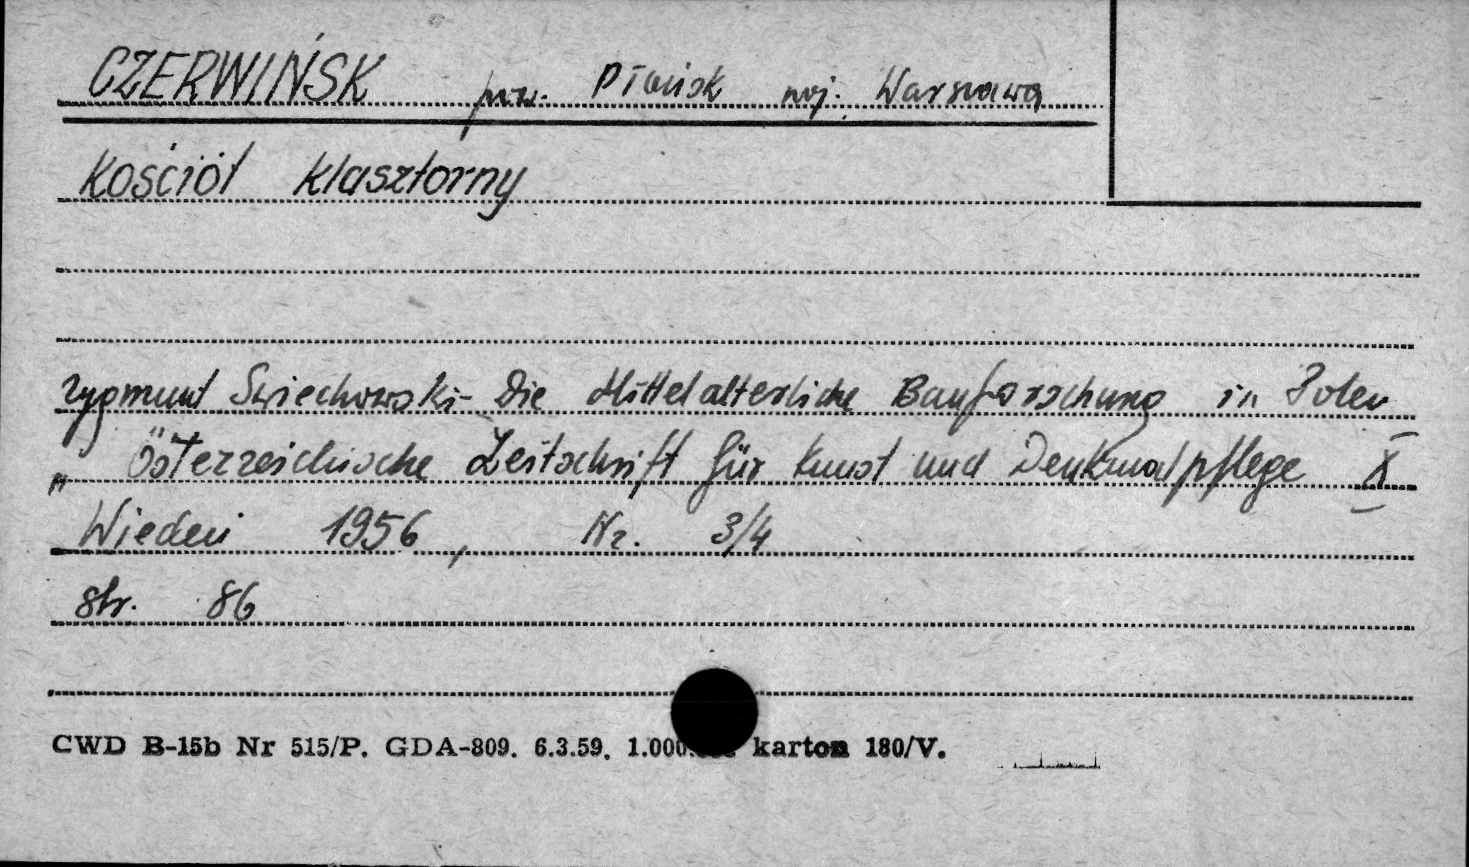 CZERWIŃSK pow. Płońsk woj. Warszawa
Kościół klasztorny
Zygmunt Swiechowski - Die Mittelalterliche Bauforschung in Polen
" Österreichische Zeitschrift für Kunst und Denkmalpflege X
Wiedeń 1956, Nr. 3/4
str. 86
CWD B-15b Nr 515/P. GDA-809. 6.3.59. 1.000. karton 180/V.